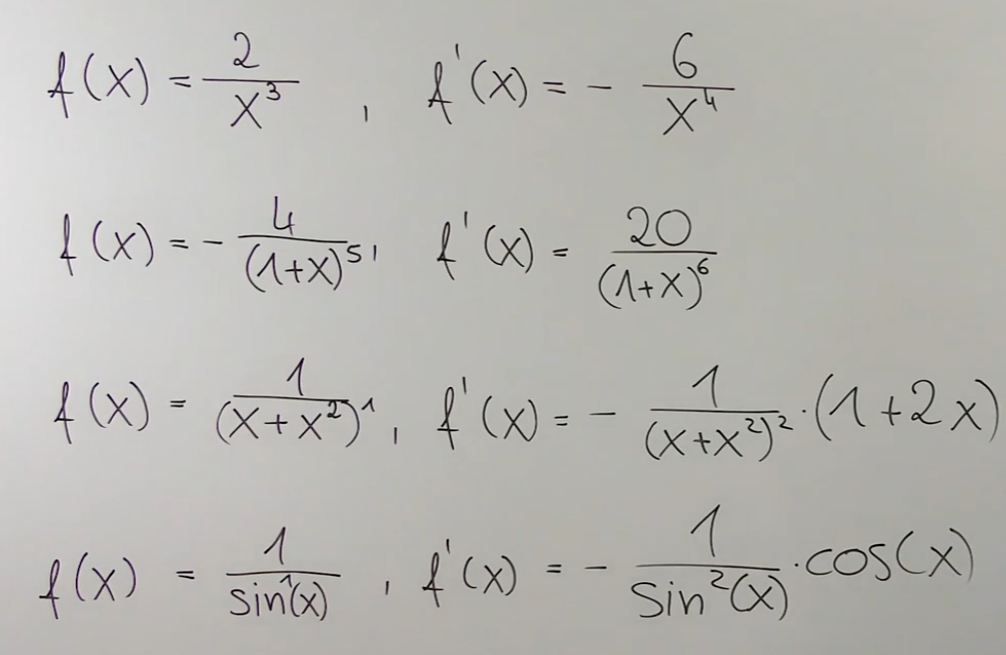 f(x) = 2/x³ , f'(x) = - 6/x⁴
f(x) = - 4/(1+x)⁵ , f'(x) = 20/(1+x)⁶
f(x) = 1/(x+x²)¹ , f'(x) = - 1/(x+x²)² · (1+2x)
f(x) = 1/sin¹(x) , f'(x) = - 1/sin²(x) · cos(x)